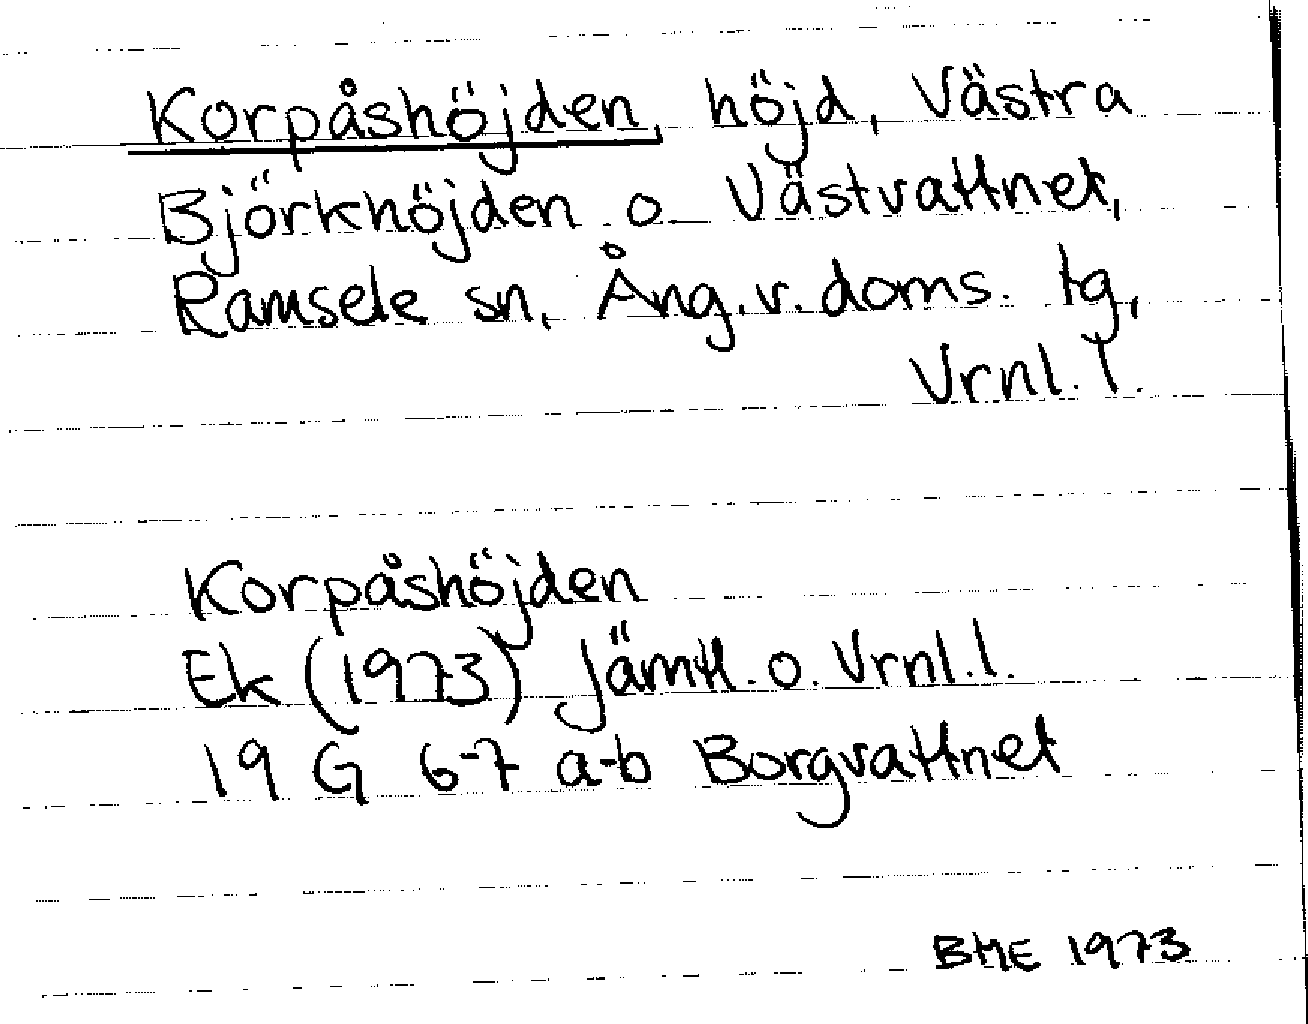 Korpåshöjden, höjd, Västra
Björkhöjden o Västvattnet,
Ramsele sn, Ång.v.doms. tg,
Vrnl. l.
Korpåshöjden
Ek (1973) Jämtl. o. Vrnl. l.
19 G 6-7 a-b Borgvattnet
BME 1973